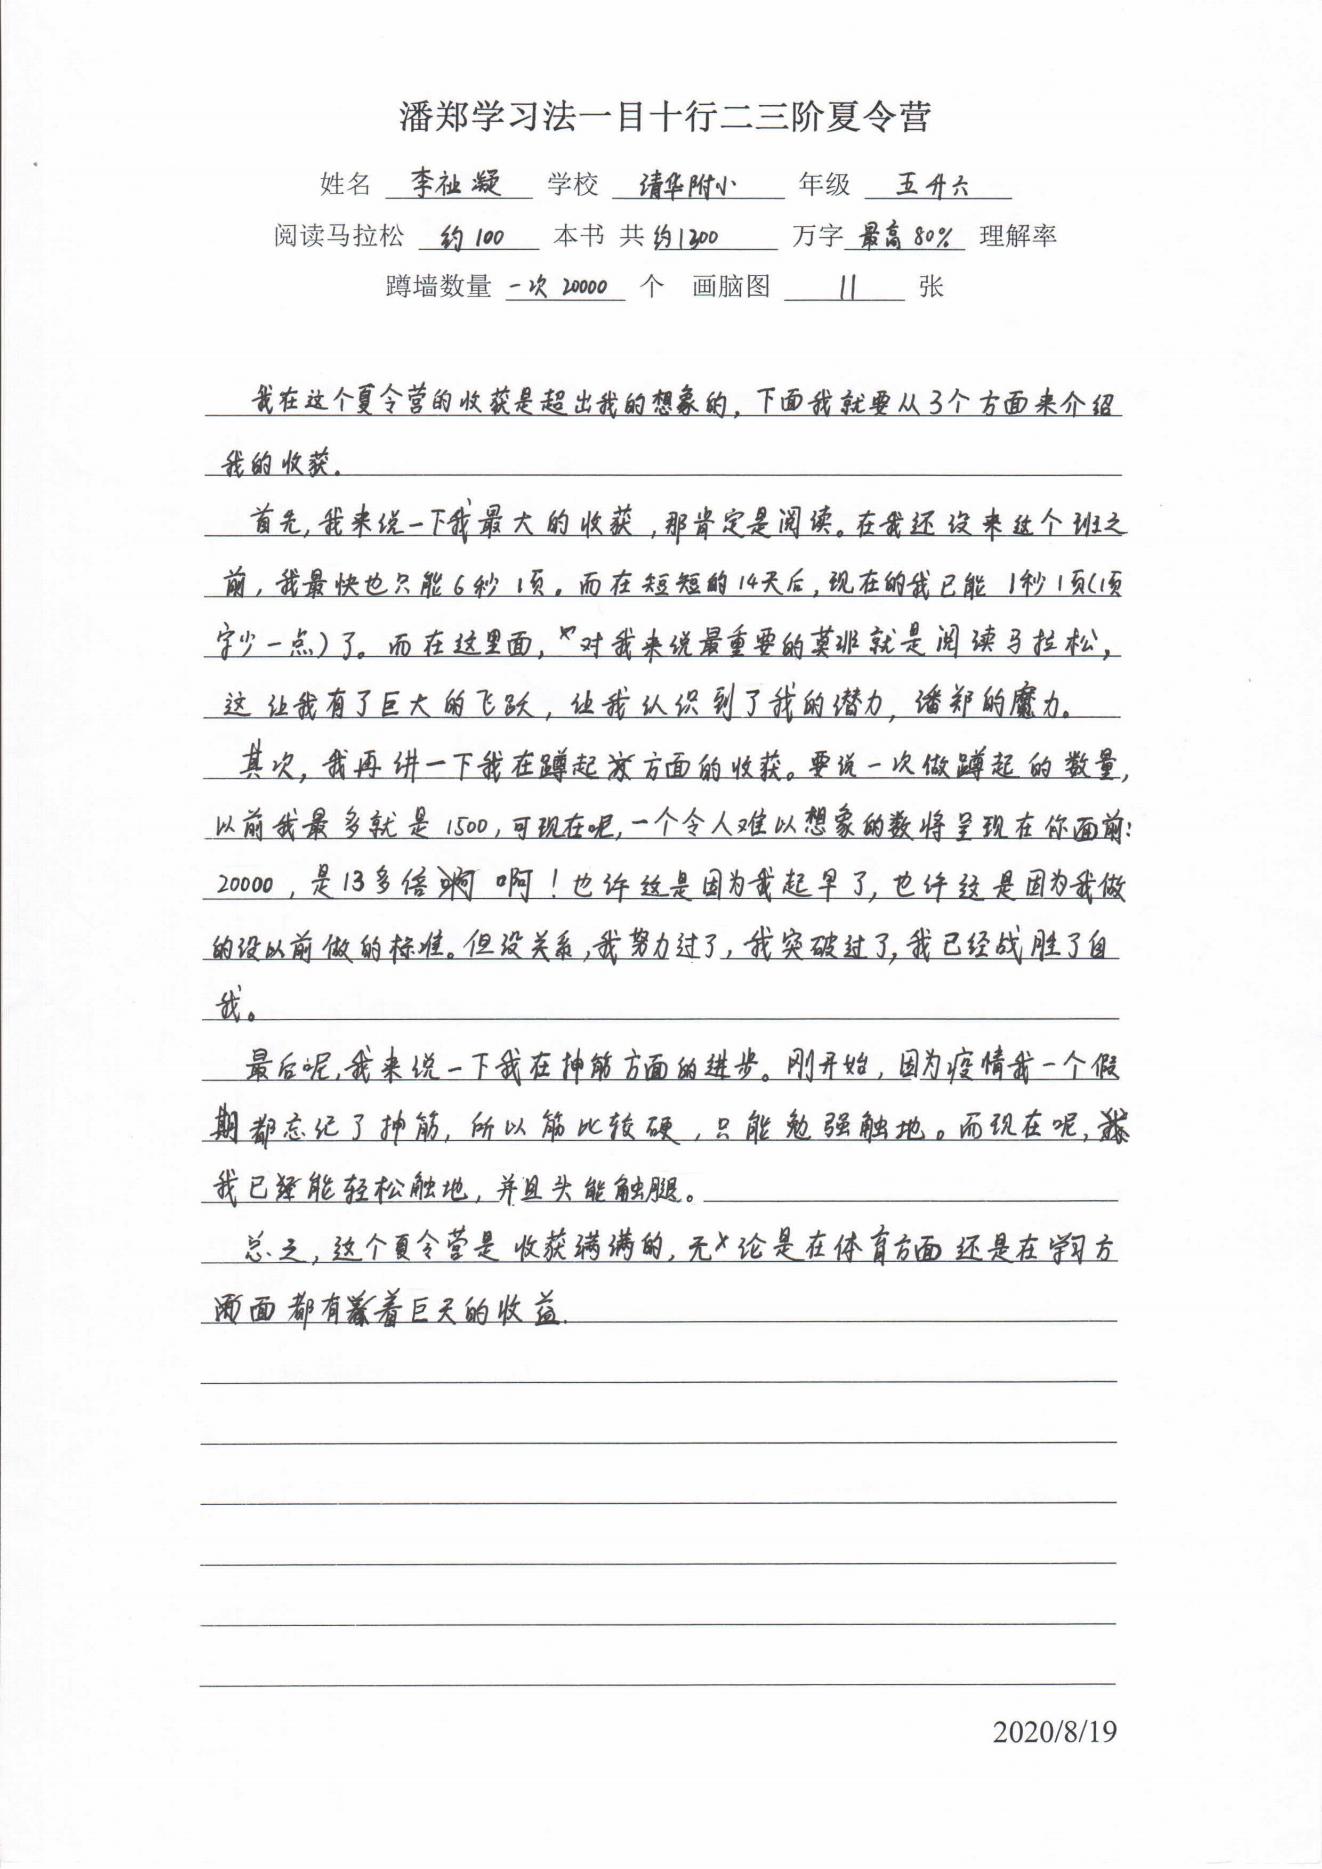 潘郑学习法一目十行二三阶夏令营
姓名 李祉凝 学校 清华附小 年级 五升六
阅读马拉松 约100 本书 共 约1300 万字 最高80% 理解率
蹲墙数量 一次20000 个 画脑图 11 张
我在这个夏令营的收获是超出我的想象的，下面我就要从3个方面来介绍
我的收获。
首先，我来说一下我最大的收获，那肯定是阅读。在我还没来这个班之
前，我最快也只能6秒1页。而在短短的14天后，现在的我已能1秒1页(1页
字少一点)了。而在这里面，对我来说最重要的莫非就是阅读马拉松，
这让我有了巨大的飞跃，让我认识到了我的潜力，潘郑的魔力。
其次，我再讲一下我在蹲起方面的收获。要说一次做蹲起的数量，
以前我最多就是1500，可现在呢，一个令人难以想象的数将呈现在你面前：
20000，是13多倍啊！也许这是因为我起早了，也许这是因为我做
的没以前做的标准。但没关系，我努力过了，我突破过了，我已经战胜了自
我。
最后呢，我来说一下我在抻筋方面的进步。刚开始，因为疫情我一个假
期都忘记了抻筋，所以筋比较硬，只能勉强触地。而现在呢，
我已经能轻松触地，并且头能触腿。
总之，这个夏令营是收获满满的，无论是在体育方面还是在学习方
面都有着巨大的收益.
2020/8/19